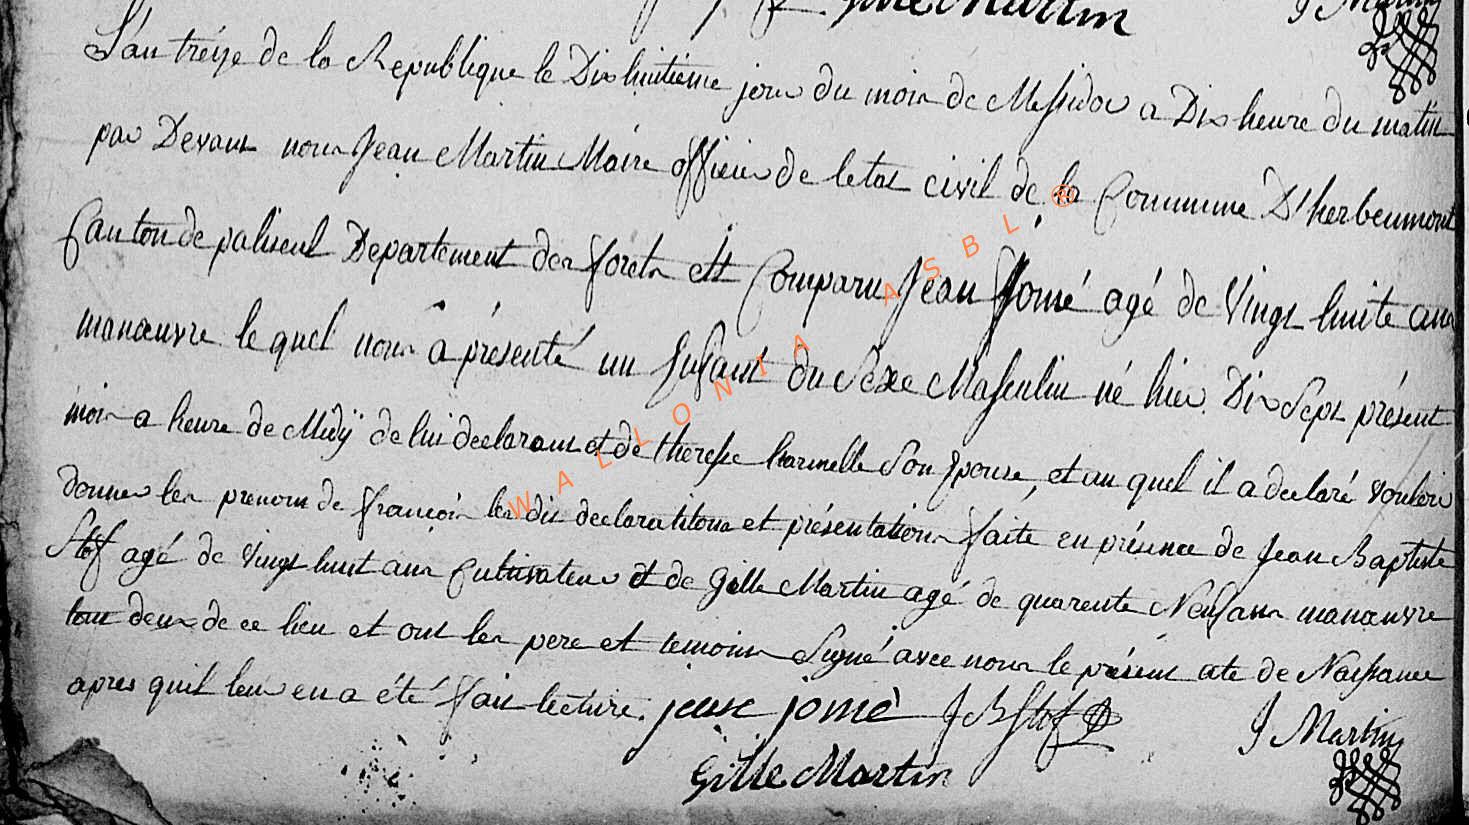 Gille Martin J Martin
L'an tréize de la Republique le Dix huitième jour du mois de Messidor a Dix heure du matin
par Devant nous Jean Martin Maire officier de letat civil de la Commune D'herbeumont
Canton de paliseul Departement des forets est Comparu Jean Jomé agé de Vingt huite ans
manœuvre le quel nous a présenté un Enfant du Sexe Masculin né hier Dix Sept présent
mois a heure de Midÿ de lui declarant et de therese harmelle Son Epouse, et au quel il a declaré vouloir
donner les prenom de françois les dis declaratitons et présentations faite en présence de Jean Baptiste
Stof agé de Vingt huit ans Cultivateur et de Gille Martin agé de quarente Neuf ans manœuvre
tous deux de ce lieu et ont les pere et temoins Signé avec nous le présent acte de Naissance
apres quil leur en a été fait lecture. jean jomé J B Stof J Martin
Gille Martin
WALLONIA ASBL ®